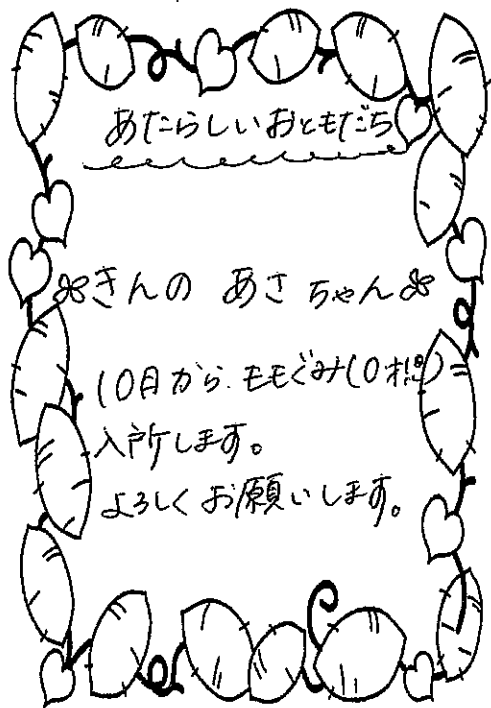 あたらしいおともだち
きんの あさ ちゃん
10月から、ももぐみ(0才児)
入所します。
よろしくお願いします。